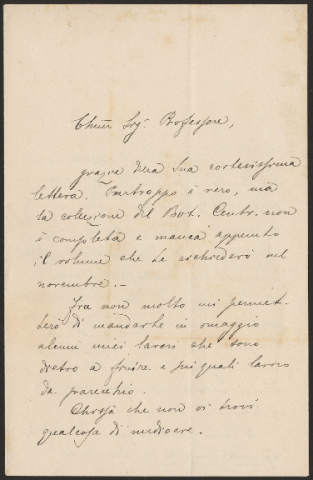 Chmo Sig. Professore,
grazie della Sua cortesissima
lettera. Purtroppo è vero, ma
la collezione del Bot. Centr. non
è completa e manca appunto
il volume che Le richiederò nel
novembre. –
Fra non molto mi permet-
terò di mandarle in omaggio
alcuni miei lavori che sono
dietro a finire e sui quali lavoro
da parecchio.
Chissà che non vi trovi
qualcosa di mediocre.